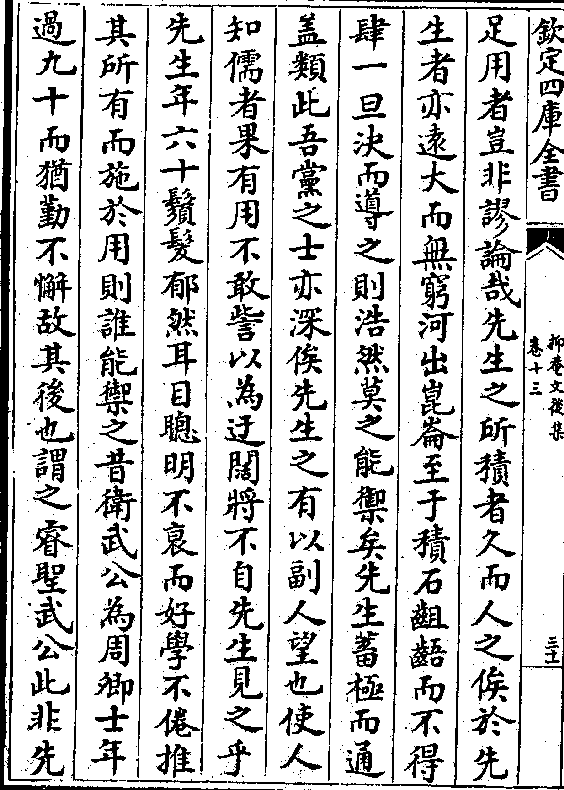 欽定四庫全書
抑菴文後集
卷十三
三十
足用者豈非謬論哉先生之所積者久而人之俟於先
生者亦遠大而無窮河出崑崙至于積石齟齬而不得
肆一旦決而導之則浩然莫之能禦矣先生蓄極而通
蓋類此吾黨之士亦深俟先生之有以副人望也使人
知儒者果有用不敢訾以為迂闊將不自先生見之乎
先生年六十鬚髮郁然耳目聰明不衰而好學不倦推
其所有而施於用則誰能禦之昔衛武公為周卿士年
過九十而猶勤不懈故其後也謂之睿聖武公此非先